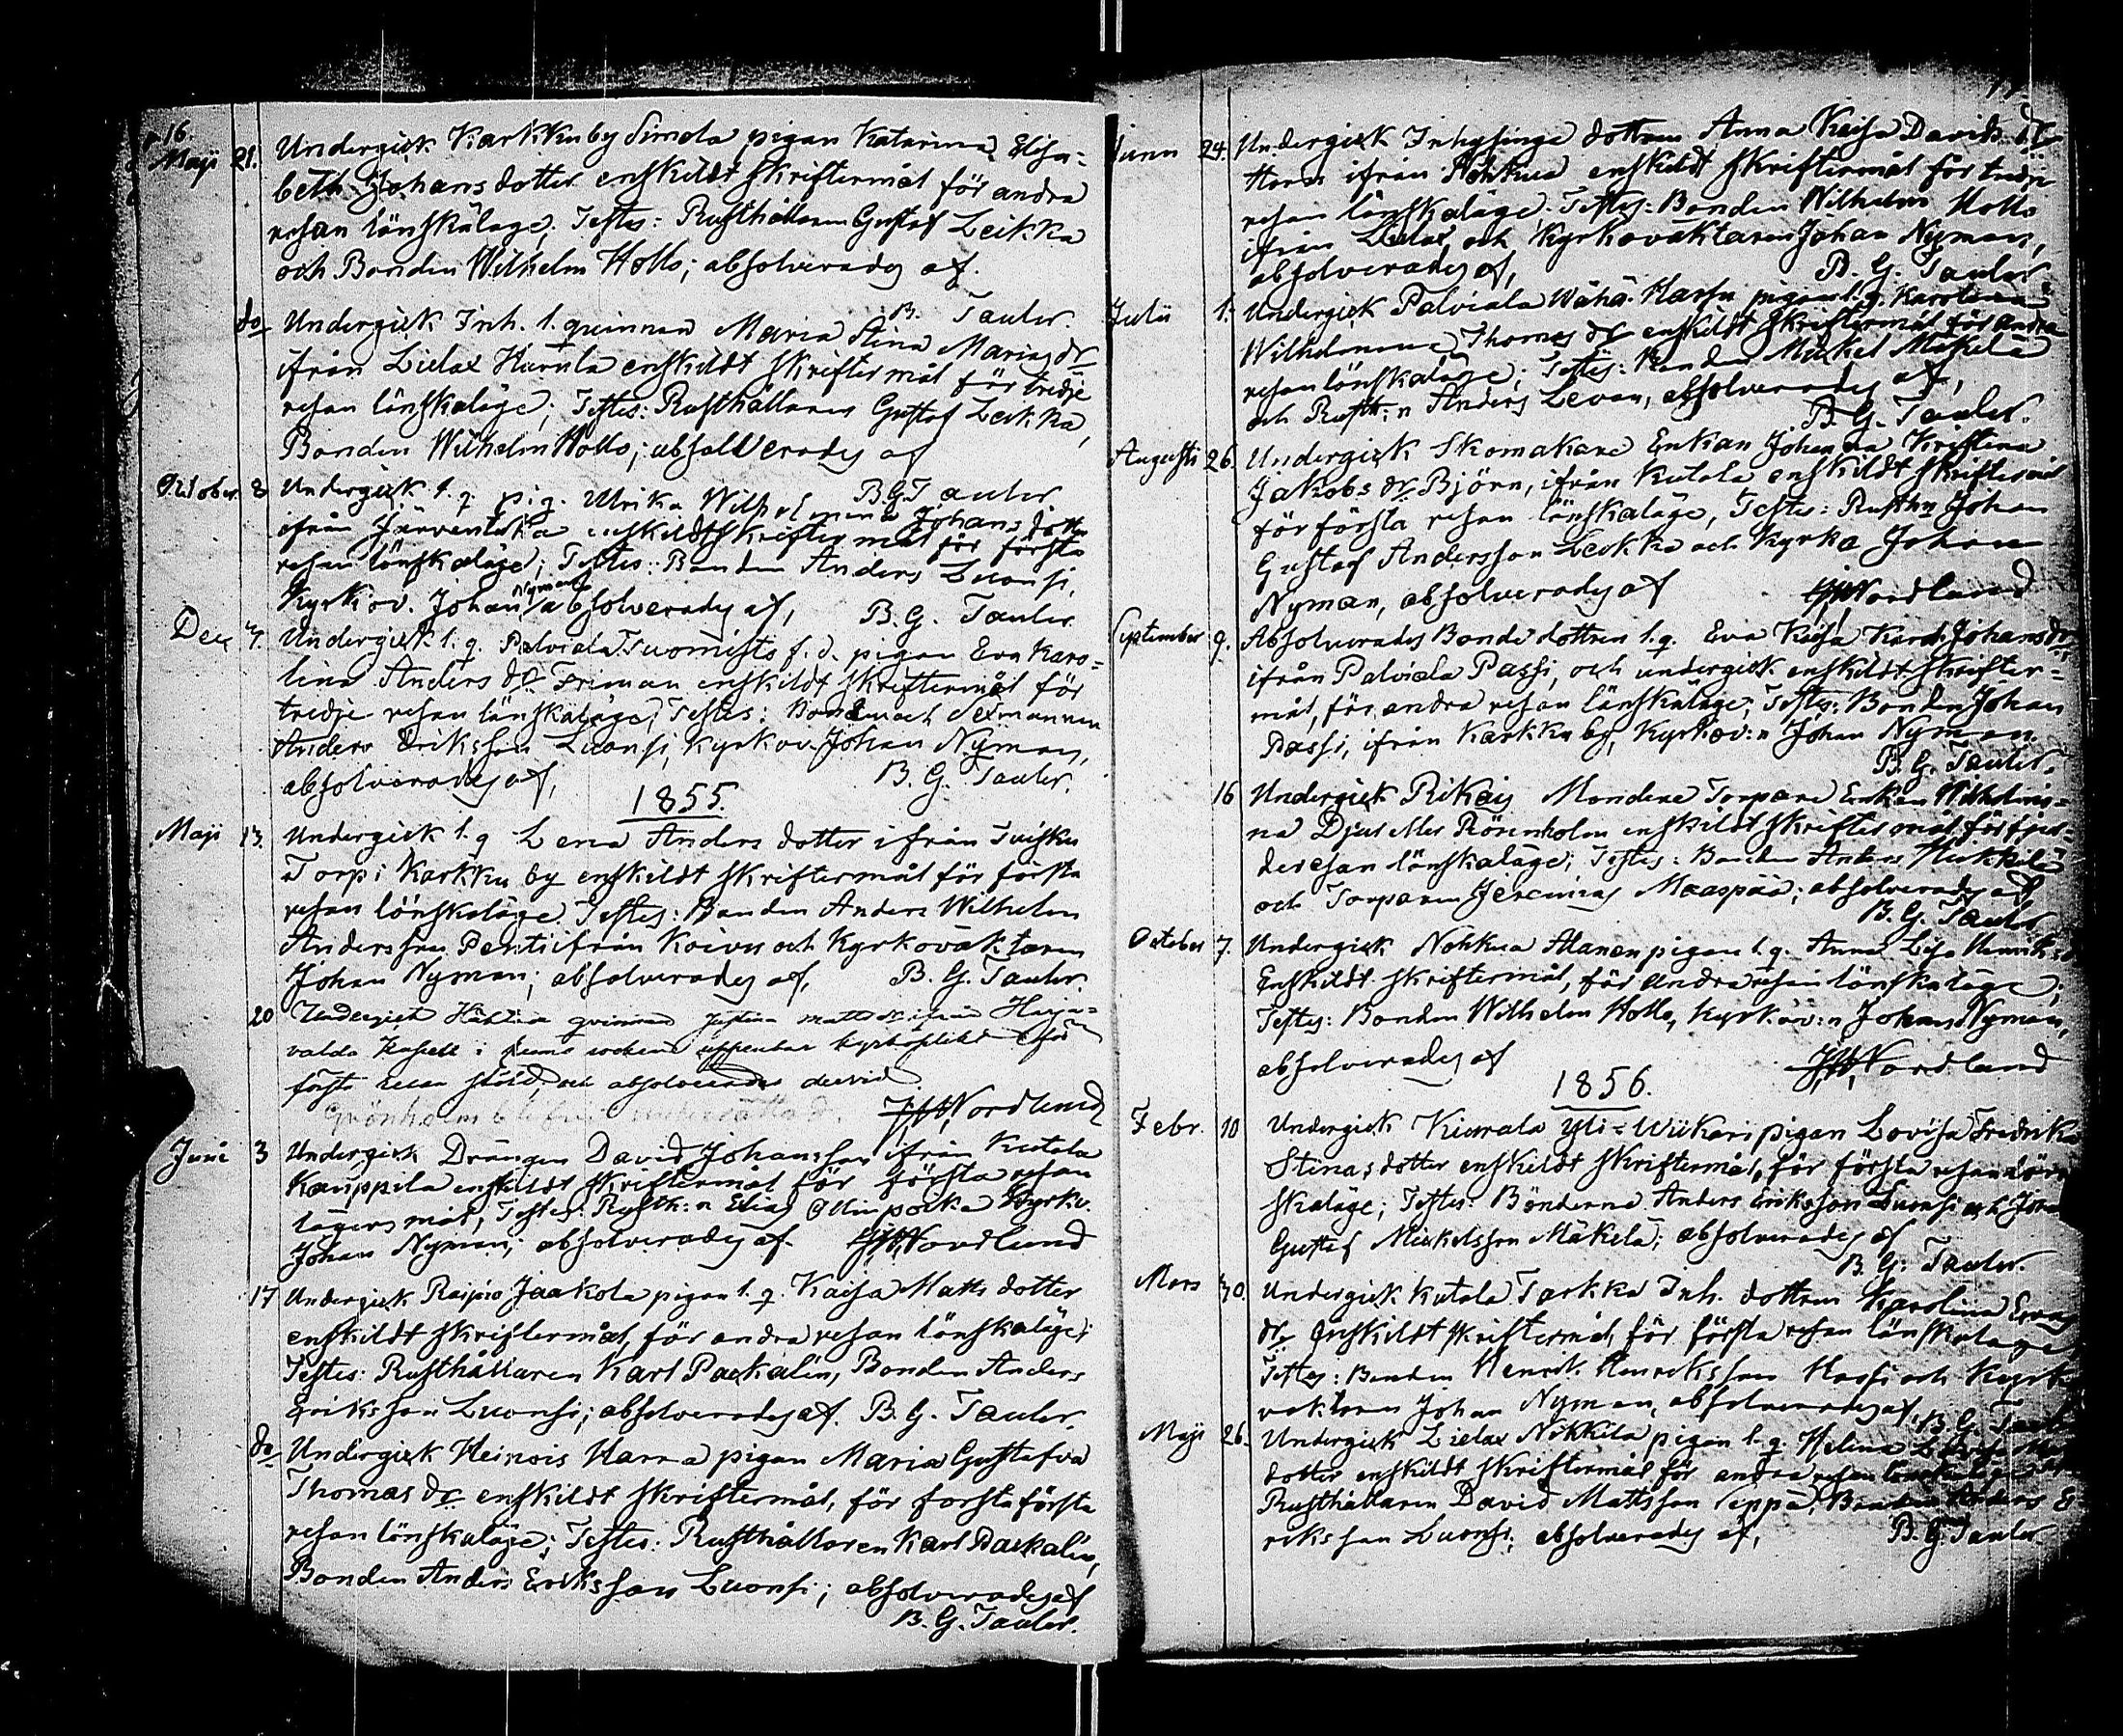 16.
Maji 21. Undergick Karkku by Simola pigan Katarina Elisa=
beth Johans dotter enskildt skriftermål för andra
resan lönskaläge; Testes: Rusthållaren Gustaf Leikka
och Bonden Wilhelm Hollo; absolverades af.
B. Tauler.
do Undergick Inh. l. quinnan Maria Stina Marias dr
ifrån Lielax Harula enskildt skriftermål för tredje
resan lönskaläge; Testes: Rusthållaren Gustaf Leikka,
Bonden Wilhelm Hollo; absollverades af
B G Tauler
October 8 Undergick l. q. pig. Ulrika Wilhelmina Johans dotter
ifrån Järventaka enskildt skriftermål för första
resan lönskaläge; Testes: Bonden Anders Luonsi,
Kyrkov. Johan Nyman absolverades af, B. G. Tauler
Dec 7. Undergick l. q. Palviala Tuomisto f. d. pigan Eva Karo=
lina Anders dr Friman enskildt skriftermål för
tredje resan lönskaläge; Testes: Bonden och Sexmannen
Anders Eriksson Luonsi, Kyrkov. Johan Nyman,
absolverades af, B. G. Tauler.
1855.
Maji 13. Undergick l. q Lena Anders dotter ifrån Tuisku
Torp i Karkku by enskildt skriftermål för första
resan lönskaläge. Testes: Bonden Anders Wilhelm
Andersson Pentti ifrån Koivu och Kyrkoväktaren
Johan Nyman; absolverades af, B. G. Tauler.
20 Undergick Häktade qvinnan Justina Matts dr ifrån Harja=
valda Kapell i Eura socken uppenbar kyrkoplikt för
första resan stöld, och absolverades dervid
Grönholm
J W Nordlund
Junii 3 Undergick Drängen David Johansson ifrån Kutala
Kauppila enskildt skriftermål för första resan
lägersmål, Testes: Rusth:n Elias Ollinpoika Kyrkv.
Johan Nyman; absolverades af. J W Nordlund
17 Undergick Raipio Jaakola pigan l. q. Kaisa Matts dotter
enskildt skriftermål, för andra resan lönskaläge;
Testes: Rusthållaren Karl Paskalin, Bonden Anders
Eriksson Luonsi; absolverades af. B. G. Tauler.
do Undergick Heinois Harra pigan Maria Gustafva
Thomas dr enskildt skriftermål, för forsta första
resan lönskaläge; Testes: Rusthållaren Karl Paskalin,
Bonden Anders Eriksson Luonsi; absolverades af
B. G. Tauler.
Junii 24. Undergick Inhysinge dottren Anna Kaisa Davids
ifrån Nohkua enskildt skriftermål för tredje
resan lönskaläge, Testes: Bonden Wilhelm Hollo
ifrån Lielax, och Kyrkovaktaren Johan Nyman,
absolverades af, B. G. Tauler
Julii 1. Undergick Palviala Wähä-Hassu pigan l. q. Karolina
Wilhelmina Thomas dr enskildt skriftermål för andra
resan lönskaläge; Testes: Bonden Mickel Mäkelä
och Rusth:n Anders Levan, absolverades af,
B. G. Tauler.
Augusti 26. Undergick Skomakare Enkan Johanna Kristina
Jakobs dr Björn, ifrån Kutala enskildt skriftermål
för första resan lönskaläge, Testes: Rusth:n Johan
Gustaf Andersson Leikka och Kyrkv Johan
Nyman, absolverades af J W Nordlund
September 9. Absolverades Bonde dottren l. q. Eva Kaisa Karol. Johans dr
ifrån Palviala Passi, och undergick enskildt skrifter=
mål, för andra resan lönskaläge, Testes: Bonden Johan
Passi, ifrån Karkku by, Kyrkov:n Johan Nyman.
B. G. Tauler.
16 Undergick Rikais Mondere Torpare Enkan Wilhelmi=
na Djus eller Rörenholm enskildt skriftermål för fjer=
de resan lönskaläge; Testes: Bonden Anders Heikkilä
och Torparen Jeremias Maaspää; absolverades af
B. G. Tauler
October 7. Undergick Nohkua Alanen pigan l. q. Anna Lisa Henriks d.
Enskildt skriftermål, för andra resan lönskaläge;
Testes: Bonden Wilhelm Hollo, Kyrkov:n Johan Nyman,
absolverades af J W Nordland
1856.
Febr. 10 Undergick Kiurala Yli=Wiikari pigan Lovisa Fredrika
Stinas dotter enskildt skriftermål, för första resan lön
skaläge; Testes: Bönderne Anders Eriksson Luonsi och Johan
Gustaf Mickelsson Mäkelä; absolverades af
B. G. Tauler.
Mars 30. Undergick Kutala Tarkka Inh. dottren Karolina Evas
dr Enskildt skriftermål, för första resan lönskaläge
Testes: Bonden Henrik Henriksson Hassi och Kyrko
vaktaren Johan Nyman, absolverades af,
B. G. Tauler
Maji 26. Undergick Lielax Nikkilä pigan l. q. Helena
dotter enskildt skriftermål för andra resan lönskaläge
Rusthållaren David Mattsson Seppä, Bonden Anders E
riksson Luonsi; absolverades af, B. G. Tauler